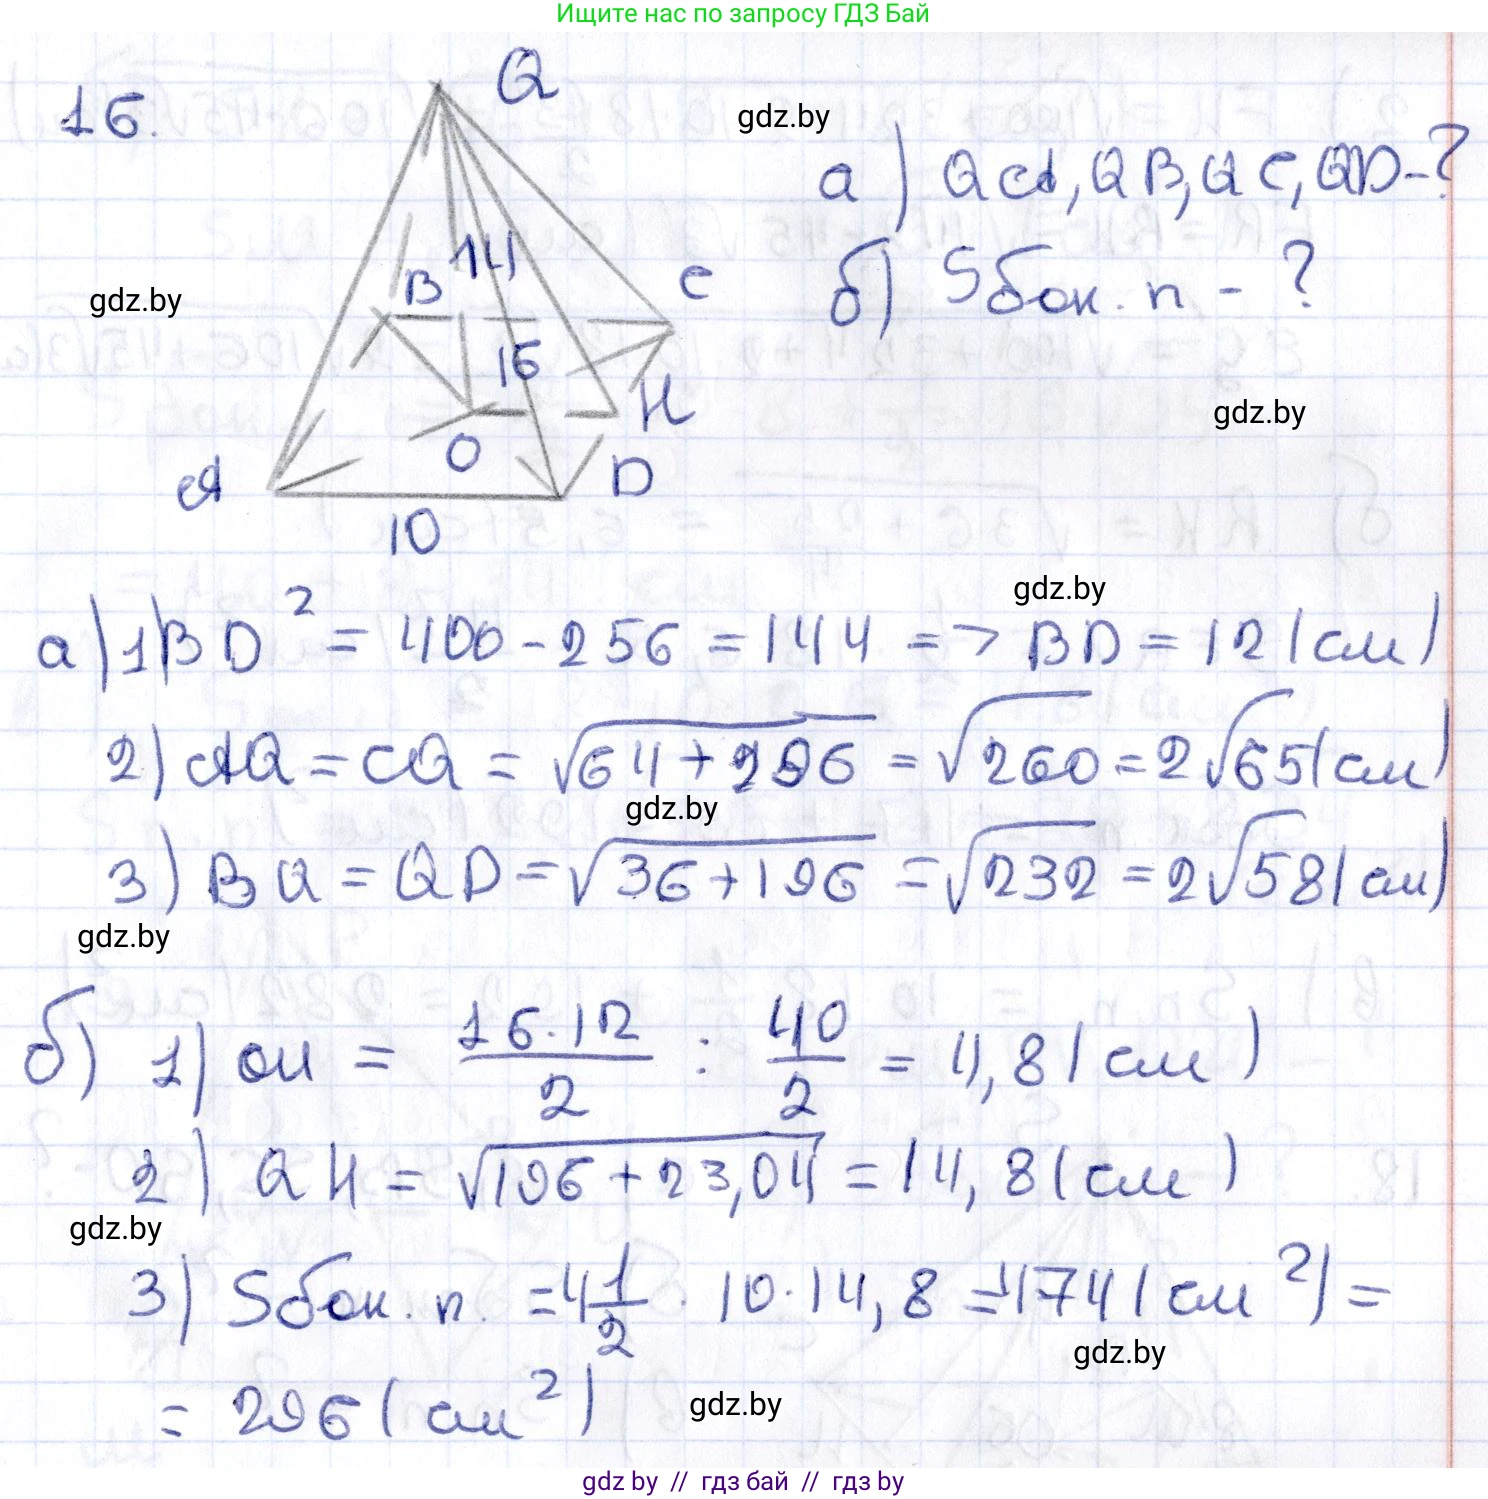 Ищите нас по запросу ГДЗ Бай
16.
Q
gdz.by
а) QA, QB, QC, QD - ?
14
B
C
gdz.by
б) Sбок. п - ?
16
H
gdz.by
O
A
D
10
gdz.by
а) 1) BD² = 400 - 256 = 144 => BD = 12 (см)
2) AQ = CQ = √64 + 196 = √260 = 2√65 (см)
gdz.by
3) BQ = QD = √36 + 196 = √232 = 2√58 (см)
gdz.by
б) 1) OH = 16·12/2 : 40/2 = 4,8 (см)
2) QH = √196 + 23,04 = 14,8 (см)
gdz.by
3) Sбок. п. = 4 1/2 · 10 · 14,8 = 4 74 (см²) =
gdz.by
= 296 (см²)
gdz.by
gdz.by // гдз бай // гдз by